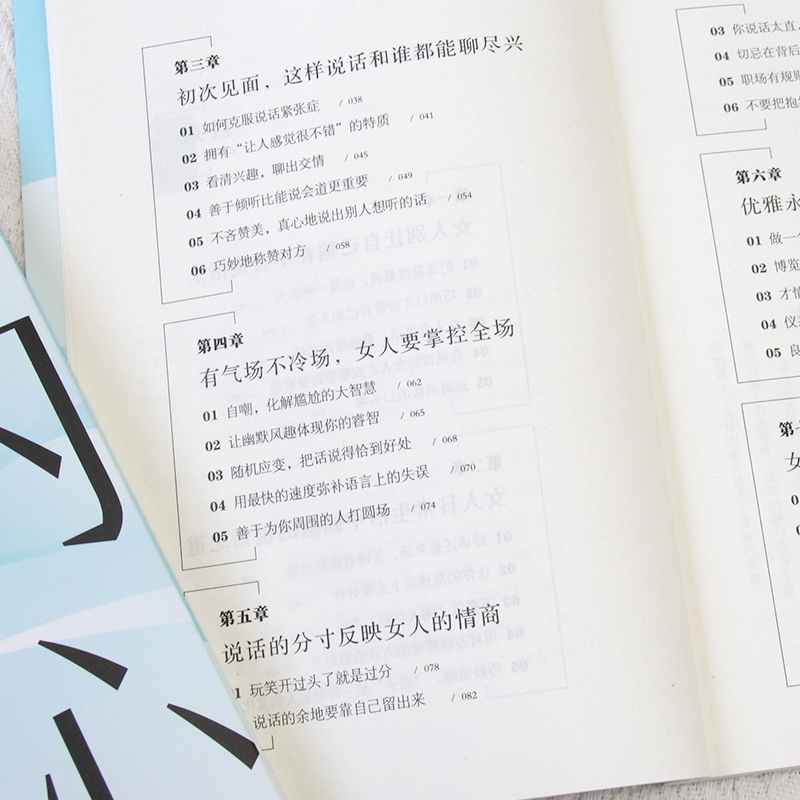 第三章
初次见面，这样说话和谁都能聊尽兴
01 如何克服说话紧张症 / 038
02 拥有“让人感觉很不错”的特质 / 041
03 看清兴趣，聊出交情 / 045
04 善于倾听比能说会道更重要 / 049
05 不吝赞美，真心地说出别人想听的话 / 054
06 巧妙地称赞对方 / 058
第四章
有气场不冷场，女人要掌控全场
01 自嘲，化解尴尬的大智慧 / 062
02 让幽默风趣体现你的睿智 / 065
03 随机应变，把话说得恰到好处 / 068
04 用最快的速度弥补语言上的失误 / 070
05 善于为你周围的人打圆场 / 074
第五章
说话的分寸反映女人的情商
1 玩笑开过头了就是过分 / 078
说话的余地要靠自己留出来 / 082
03 你说话太直，
04 切忌在背后
05 职场有规则
06 不要把抱怨
第六章
优雅永
01 做一个
02 博览
03 才情
04 仪
05 良
女
0